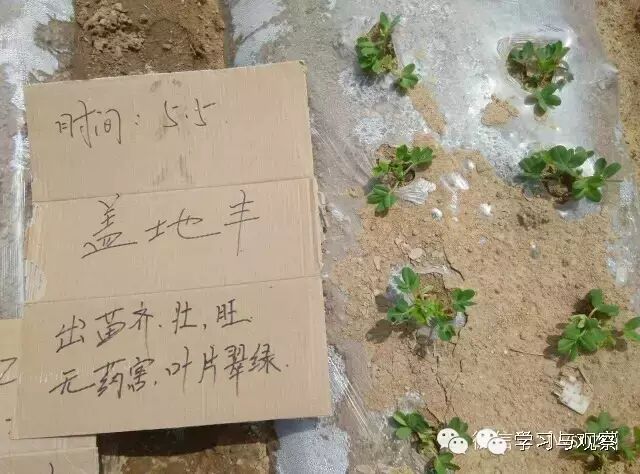 时间：5.5
盖地丰
出苗齐.壮,旺
无药害,叶片翠绿.
微信学习与观察